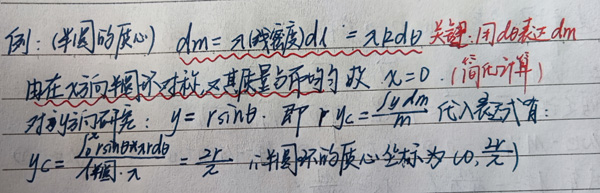 例:(半圆的质心) dm = λ(线密度)dl = λRdθ 关键:用dθ表达dm
由在x方向半圆环对称,又其质量分布均匀 故 x=0.(简化计算)
对y方向研究: y = rsinθ. 即 r y_c = ∫y dm / m 代入表达式有:
y_c = ∫₀^π rsinθ·λrdθ / (半圆·λ) = 2r/π ∴半圆环的质心坐标为 (0, 2r/π)